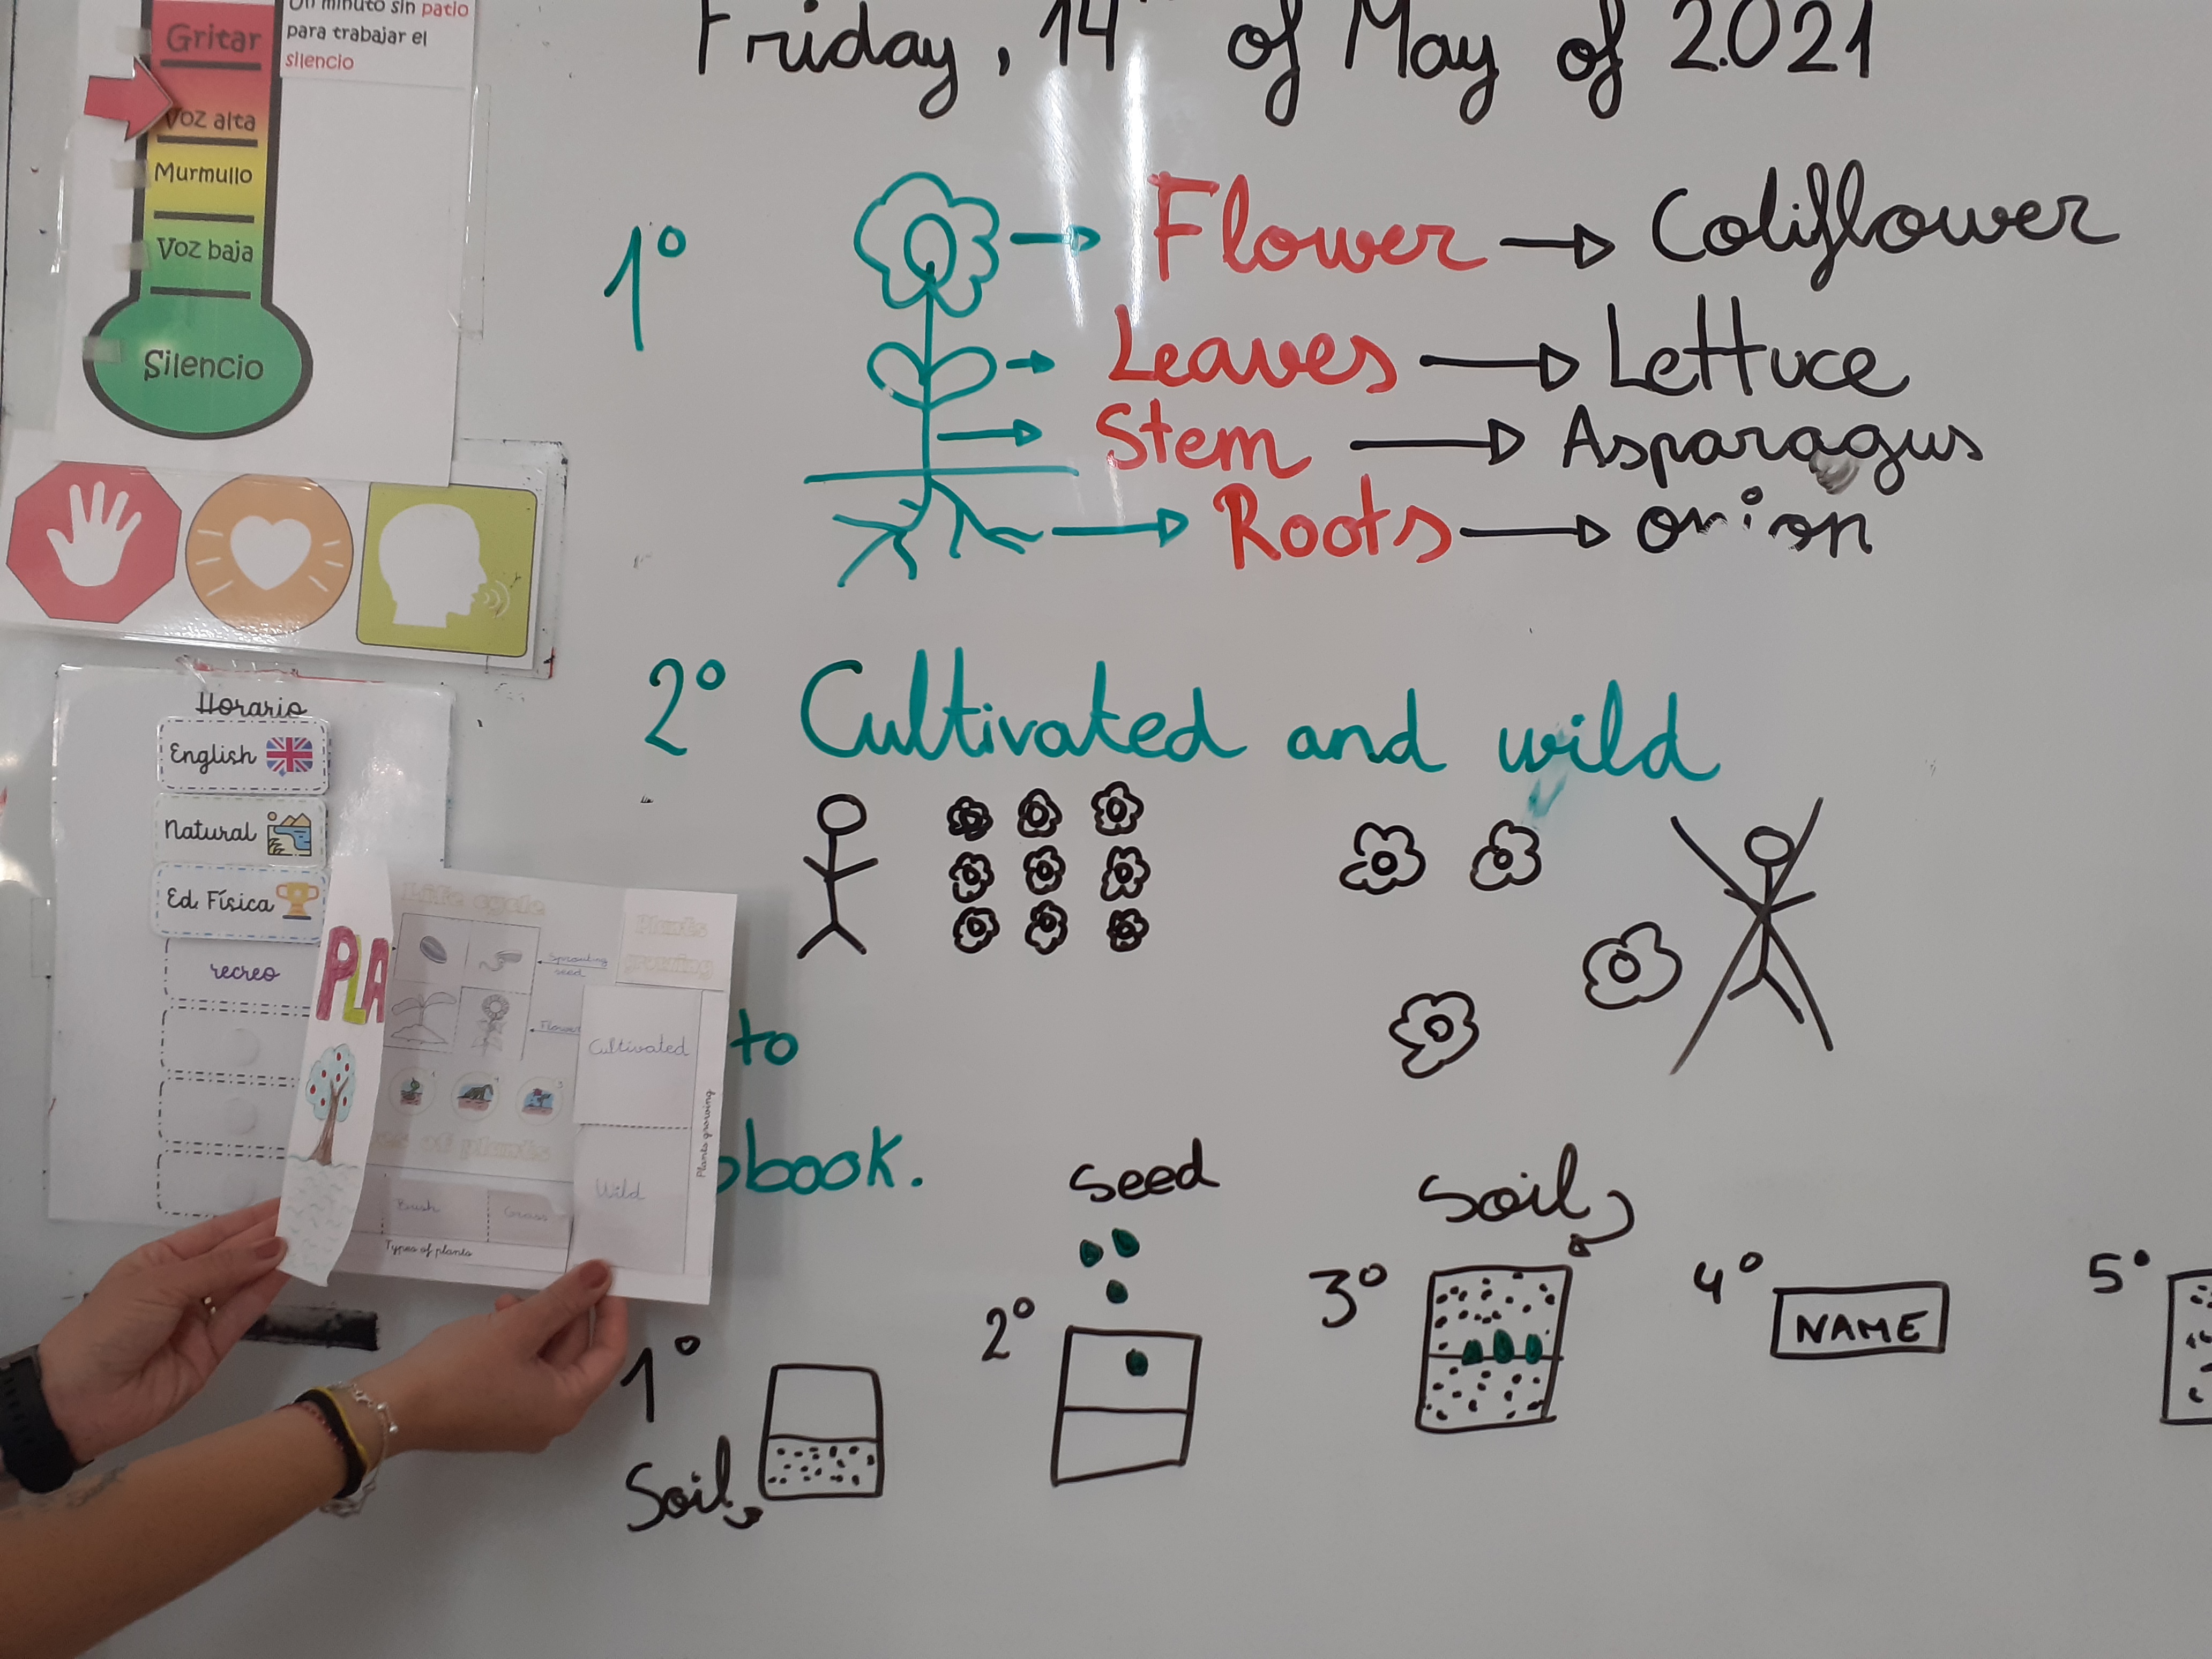 Un minuto sin patio
para trabajar el
silencio
Gritar
Voz alta
Murmullo
Voz baja
Silencio
Friday, 14 of May of 2.021
1º
Flower Coliflower
Leaves Lettuce
Stem Asparagus
Roots onion
2º Cultivated and wild
Horario
English
Natural
Ed. Física
recreo
PLA
Life cycle
Sprouting
seed
Flower
of plants
Bush
Grass
Types of plants
Plants
growing
Cultivated
Wild
Plants growing
to
book.
1º
Soil
2º
seed
3º
Soil
4º
NAME
5º